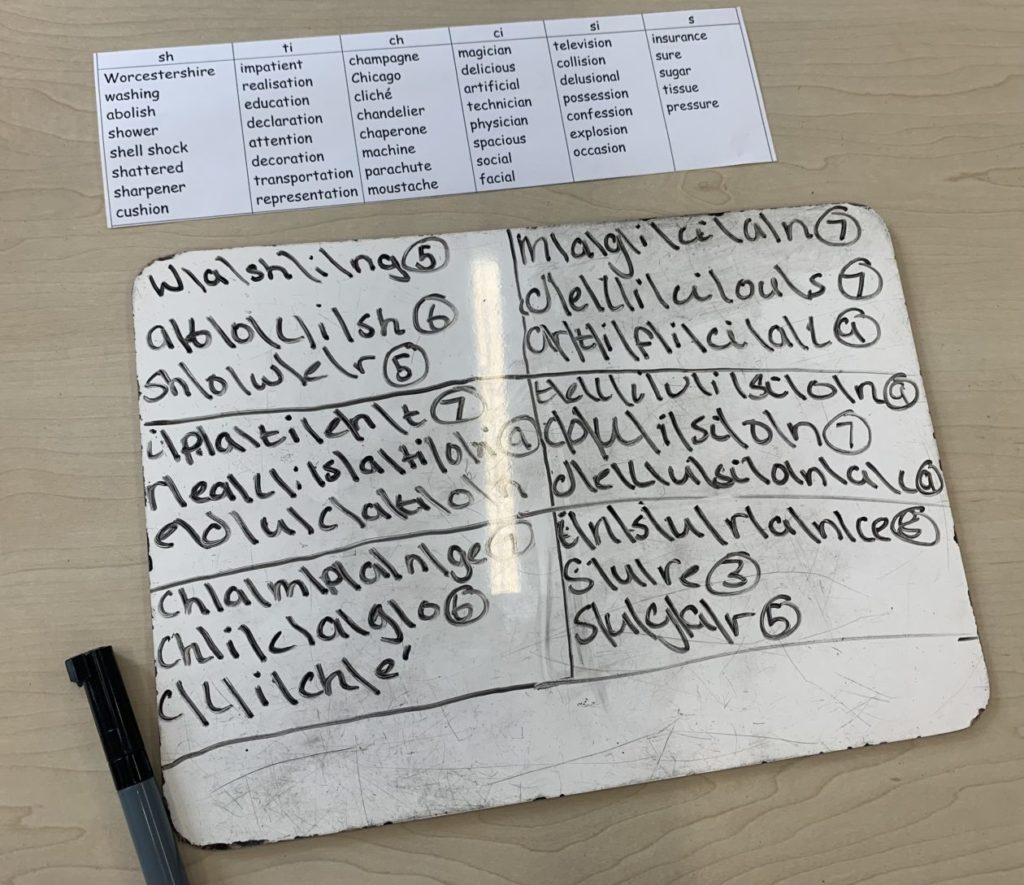 sh
Worcestershire
washing
abolish
shower
shell shock
shattered
sharpener
cushion
ti
impatient
realisation
education
declaration
attention
decoration
transportation
representation
ch
champagne
Chicago
cliché
chandelier
chaperone
machine
parachute
moustache
ci
magician
delicious
artificial
technician
physician
spacious
social
facial
si
television
collision
delusional
possession
confession
explosion
occasion
s
insurance
sure
sugar
tissue
pressure
w\a\sh\i\ng 5
a\b\o\l\i\sh 6
sh\o\w\e\r 5
i\p\a\ti\e\n\t 7
r\ea\l\i\s\a\ti\o\n 9
e\d\u\c\a\ti\o\n
ch\a\m\p\a\n\ge 7
Ch\i\c\a\g\o 6
c\l\i\ch\é
m\a\g\i\ci\a\n 7
d\e\l\i\ci\ou\s 7
ar\t\i\f\i\ci\a\l 9
9
7
d\e\l\u\si\o\n\a\l 9
i\n\s\u\r\a\n\ce 8
s\u\re 3
s\u\g\a\r 5